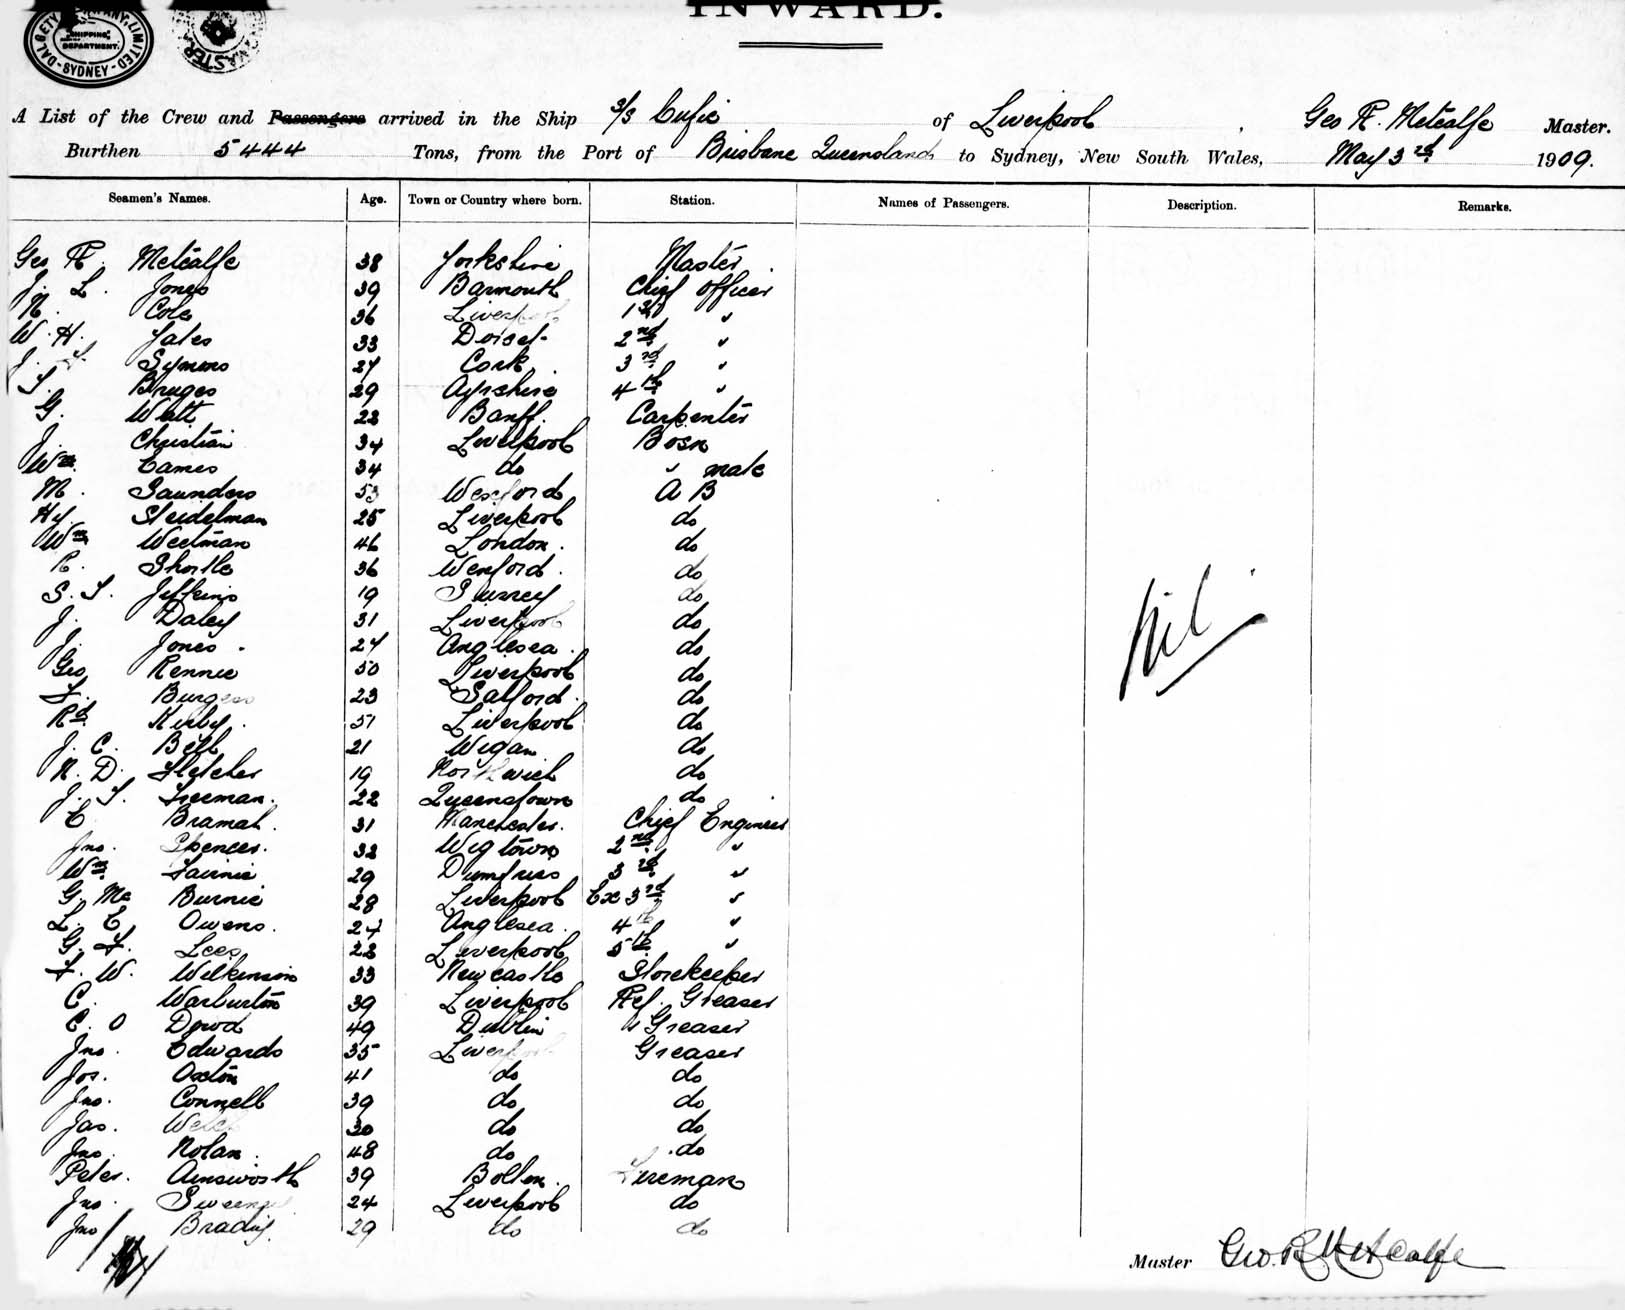 DALGETY COMPANY, LIMITED
SHIPPING DEPARTMENT.
SYDNEY
MASTER
INWARD.
A List of the Crew and Passengers arrived in the Ship S/S Cufic of Liverpool, Geo R. Metcalfe Master.
Burthen 5444 Tons, from the Port of Brisbane Queensland to Sydney, New South Wales, May 3rd 1909.
Seamen's Names. Age. Town or Country where born. Station. Names of Passengers. Description. Remarks.
Geo R. Metcalfe 38 Yorkshire Master
J. L. Jones 39 Barmouth Chief Officer
N. Cole 36 Liverpool 1st "
W. H. Yates 33 Dorset 2nd "
J. Symons 27 Cork 3rd "
T. Bruges 29 Ayrshire 4th "
G. Watt 22 Banff. Carpenter
J. Christian 34 Liverpool Bosn
Wm. Eames 34 do " mate
M. Saunders 53 Wexford A B
Hy. Steidelman 25 Liverpool do
Wm Weetman 46 London. do
R. Shortle 36 Wexford. do
S. T. Jeffkins 19 Surrey do
J. Daley 31 Liverpool do
J. Jones. 27 Anglesea. do
Geo Rennie 50 Liverpool do
F. Burgess 23 Salford. do
Rd. Kirby. 51 Liverpool do
J. C. Bell 21 Wigan do
N. D. Fletcher 19 Northwich do
J. T. Freeman. 22 Queenstown do
E Bramah. 31 Manchester. Chief Engineer
Jno. Spencer. 32 Wigtown 2nd "
Wm. Fairnie 29 Dumfries 3rd "
G. Mc Burnie 28 Liverpool Ex 3rd "
L. E Owens. 27 Anglesea. 4th "
G. F. Lees 22 Liverpool 5th "
F. W. Wilkinson 33 Newcastle Storekeeper
C. Warburton 39 Liverpool Ref. Greaser
C. O Dowd 49 Dublin " Greaser
Jno. Edwards 35 Liverpool Greaser
Jos. Oxton 41 do do
Jno. Connell 39 do do
Jas. Welch 30 do do
Jno. Nolan. 48 do do
Peter. Ainsworth 39 Bolton. Fireman
Jno. Sweeney 24 Liverpool do
Jno Brady. 29 do do
Nil
Master Geo. R Metcalfe